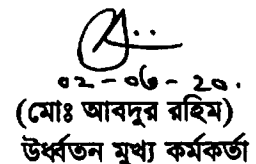 ০২-০৬-২০.
(মোঃ আবদুর রহিম)
উর্ধ্বতন মুখ্য কর্মকর্তা